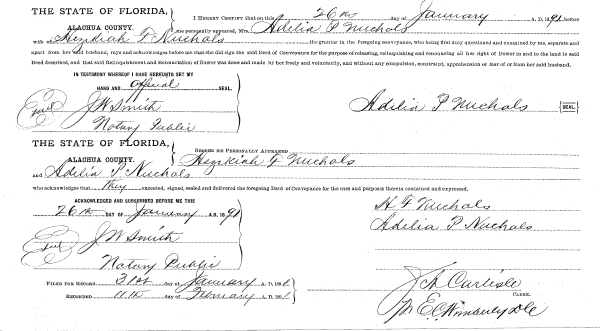 THE STATE OF FLORIDA, I HEREBY CERTIFY that on this 26th day of January A. D. 1891 before
ALACHUA COUNTY. me personally appeared, Mrs. Adelia P Nuchols
wife of Hezikiah F Nuchols the grantor in the foregoing conveyance, who being first duly questioned and examined by me, separate and
apart from her said husband, says and acknowledges before me that she did sign the said Deed of Conveyance for the purpose of releasing, relinquishing and renouncing all her right of Dower in and to the land in said
Deed described, and that said Relinquishment and Renunciation of Dower was done and made by her freely and voluntarily, and without any compulsion, constraint, apprehension or fear of or from her said husband.
IN TESTIMONY WHEREOF I HAVE HEREUNTO SET MY
HAND AND Official SEAL.
Seal J W Smith
Notary Public
Adelia P Nuchols SEAL.
THE STATE OF FLORIDA, BEFORE ME PERSONALLY APPEARED
ALACHUA COUNTY. Hezikiah F Nuchols
and Adelia P. Nuchols
who acknowledges that they executed, signed, sealed and delivered the foregoing Deed of Conveyance for the uses and purposes therein contained and expressed.
ACKNOWLEDGED AND SUBSCRIBED BEFORE ME THIS
26th DAY OF January A.D. 1891
Seal J W Smith
Notary Public
H F Nuchols
Adelia P Nuchols
FILED FOR RECORD 31st day of January A. D. 1891
RECORDED 11th day of February A. D. 1891
J A Carlisle
CLERK.